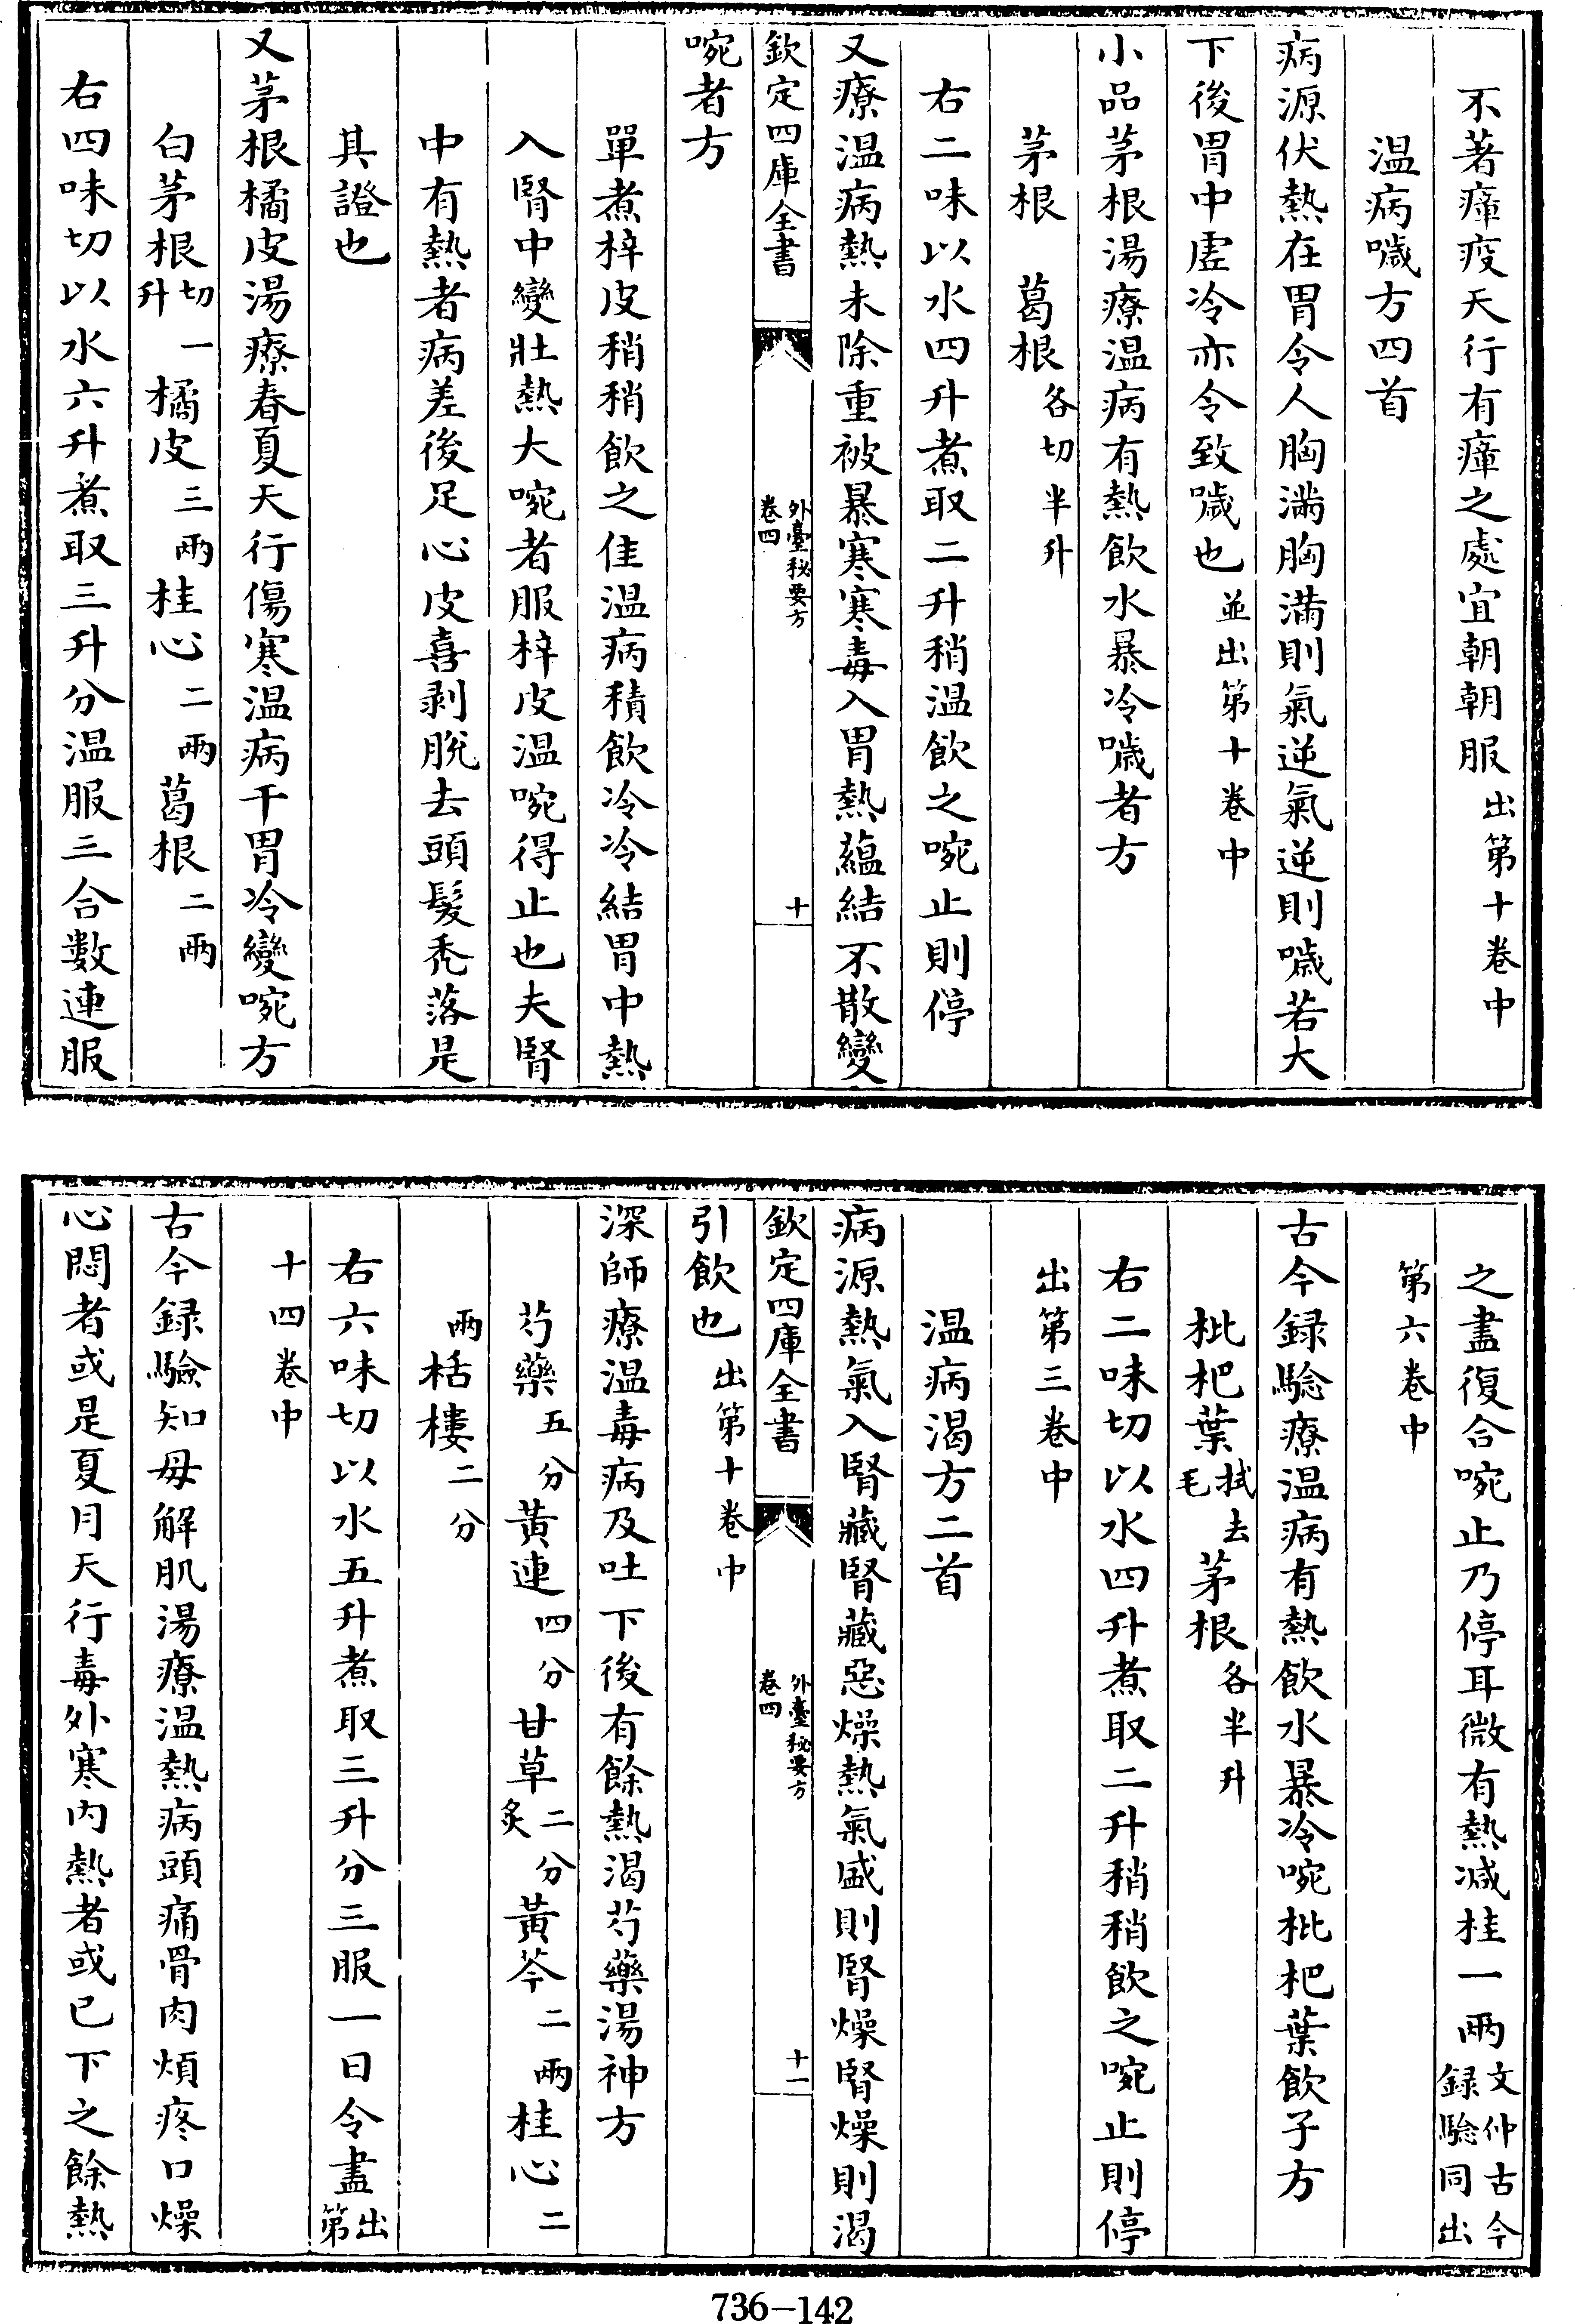 不著瘴疫天行有瘴之處宜朝朝服出第十卷中
溫病噦方四首
病源伏熱在胃令人胸滿胸滿則氣逆氣逆則噦若大
下後胃中虛冷亦令致噦也並出第十卷中
小品茅根湯療溫病有熱飲水暴冷噦者方
茅根 葛根各切半升
右二味以水四升煮取二升稍溫飲之啘止則停
又療溫病熱未除重被暴寒寒毒入胃熱蘊結不散變
欽定四庫全書 外臺秘要方卷四 十
啘者方
單煮梓皮稍稍飲之佳溫病積飲冷冷結胃中熱
入腎中變壯熱大啘者服梓皮溫啘得止也夫腎
中有熱者病差後足心皮喜剥脫去頭髮禿落是
其證也
又茅根橘皮湯療春夏天行傷寒溫病干胃冷變啘方
白茅根切一升 橘皮三兩 桂心二兩 葛根二兩
右四味切以水六升煮取三升分溫服三合數連服
之盡復合啘止乃停耳微有熱減桂一兩文仲古今錄驗同出
第六卷中
古今録驗療溫病有熱飲水暴冷啘枇杷葉飲子方
枇杷葉拭去毛 茅根各半升
右二味切以水四升煮取二升稍稍飲之啘止則停
出第三卷中
溫病渴方二首
病源熱氣入腎藏腎藏惡燥熱氣盛則腎燥腎燥則渴
欽定四庫全書 外臺秘要方卷四 十一
引飲也出第十卷中
深師療溫毒病及吐下後有餘熱渴芍藥湯神方
芍藥五分 黃連四分 甘草二分炙 黃芩二兩 桂心二
兩 栝樓二分
右六味切以水五升煮取三升分三服一日令盡出第
十四卷中
古今録驗知母解肌湯療溫熱病頭痛骨肉煩疼口燥
心悶者或是夏月天行毒外寒內熱者或已下之餘熱
736-142